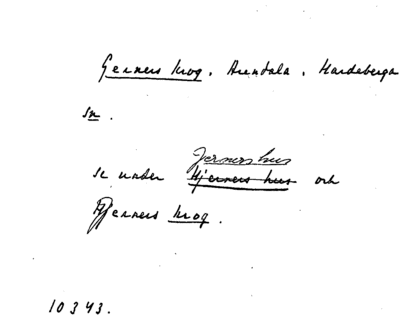 Gerners krog. Arendala. Hardeberga
sn.
Jerners hus
se under Hjerners hus och
Hjerners krog.
10343.